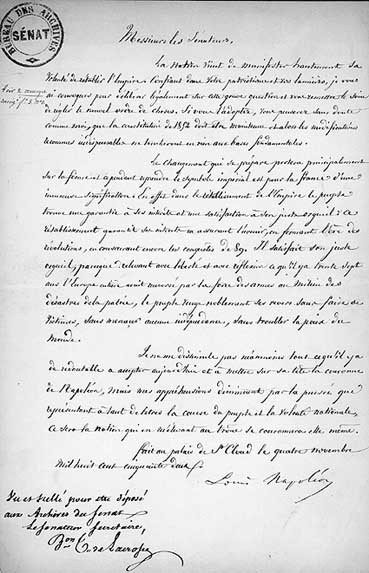 BUREAU DES ARCHIVES
SÉNAT
Messieurs les Sénateurs,
La nation vient de manifester hautement sa
volonté de rétablir l'Empire. Confiant dans votre patriotisme et vos lumières, je vous
ai convoqués pour délibérer légalement sur cette grave question et vous remettre le soin
de régler le nouvel ordre de choses. Si vous l'adoptez, vous penserez sans doute
comme moi, que la constitution de 1852 doit être maintenue et alors les modifications
reconnues indispensables ne toucheront en rien aux bases fondamentales.
Le changement qui se prépare portera principalement
sur la forme et cependant reprendre le symbole impérial est pour la france d'une
immense signification. En effet dans le rétablissement de l'Empire le peuple
trouve une garantie à ses intérêts et une satisfaction à son juste orgueil : ce
rétablissement garantit ses intérêts en assurant l'avenir, en fermant l'ère des
révolutions, en consacrant encore les conquêtes de 89. Il satisfait son juste
orgueil, parceque relevant avec liberté et avec réflexion ce qu'il y a trente sept
ans l'Europe entière avait renversé par la force des armes au milieu des
désastres de la patrie, le peuple venge noblement ses revers sans faire de
victimes, sans menacer aucune indépendance, sans troubler la paix du
monde.
Je ne me dissimule pas néanmoins tout ce qu'il y a
de redoutable à accepter aujourd'hui et à mettre sur sa tête la couronne
de Napoléon, mais mes appréhensions diminuent par la pensée que
représentant à tant de titres la cause du peuple et la volonté nationale,
ce sera la nation qui en m'élevant au trône se couronnera elle même.
fait au palais de St Cloud le quatre novembre
mil huit cent cinquante deux
Louis Napoléon
Vu et scellé pour être déposé
aux Archives du Sénat
Le Sénateur Secrétaire,
Bon T. de Lacrosse